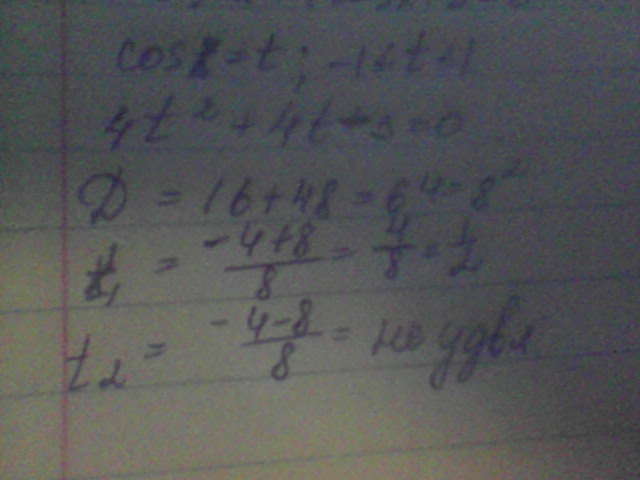 cos x = t ; -1 ≤ t ≤ 1
4t² + 4t - 3 = 0
D = 16 + 48 = 64 = 8²
t₁ = -4+8/8 = 4/8 = 1/2
t₂ = -4-8/8 = не удвл